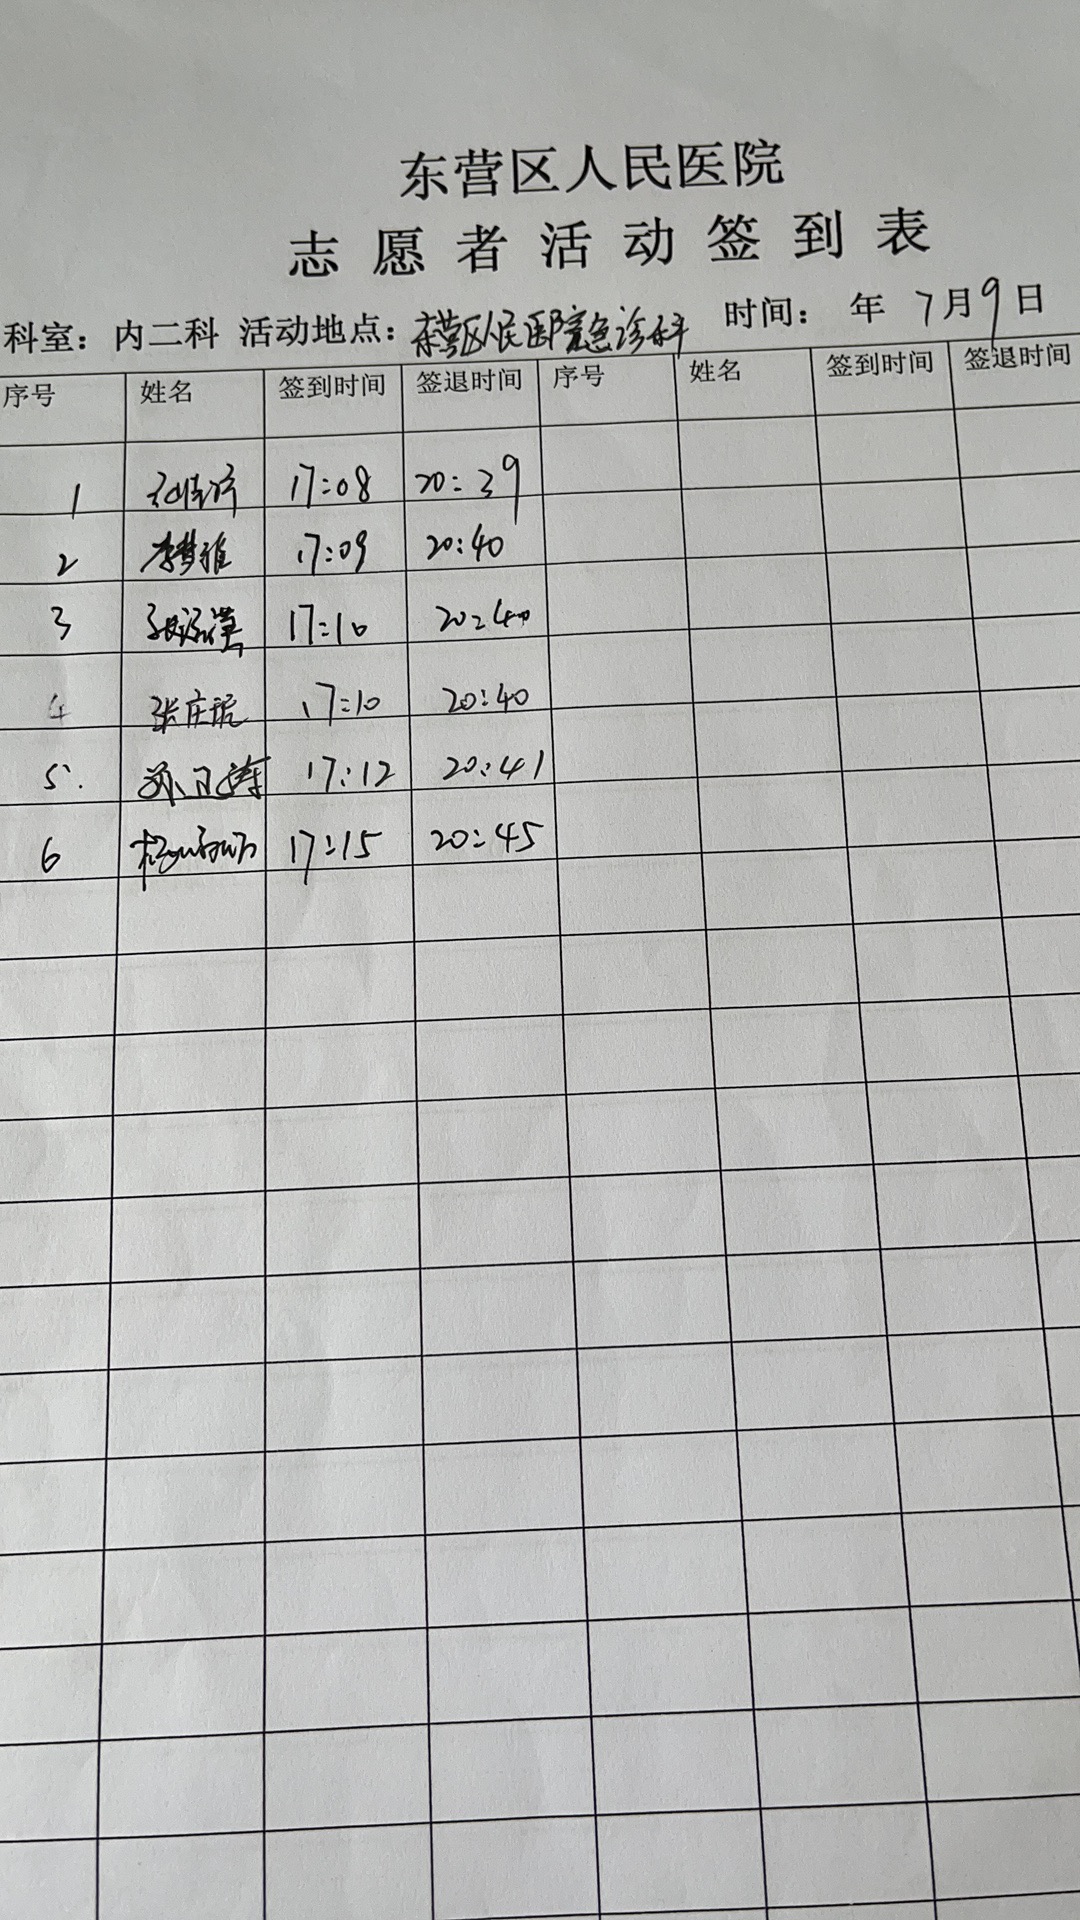 东营区人民医院
志愿者活动签到表
科室：内二科 活动地点：东营区人民医院急诊科 时间： 年 7月9日
序号 姓名 签到时间 签退时间 序号 姓名 签到时间 签退时间
1 17:08 20:39
2 李梦雅 17:09 20:40
3 17:10 20:40
4 张庆 17:10 20:40
5. 苏卫涛 17:12 20:41
6 17:15 20:45